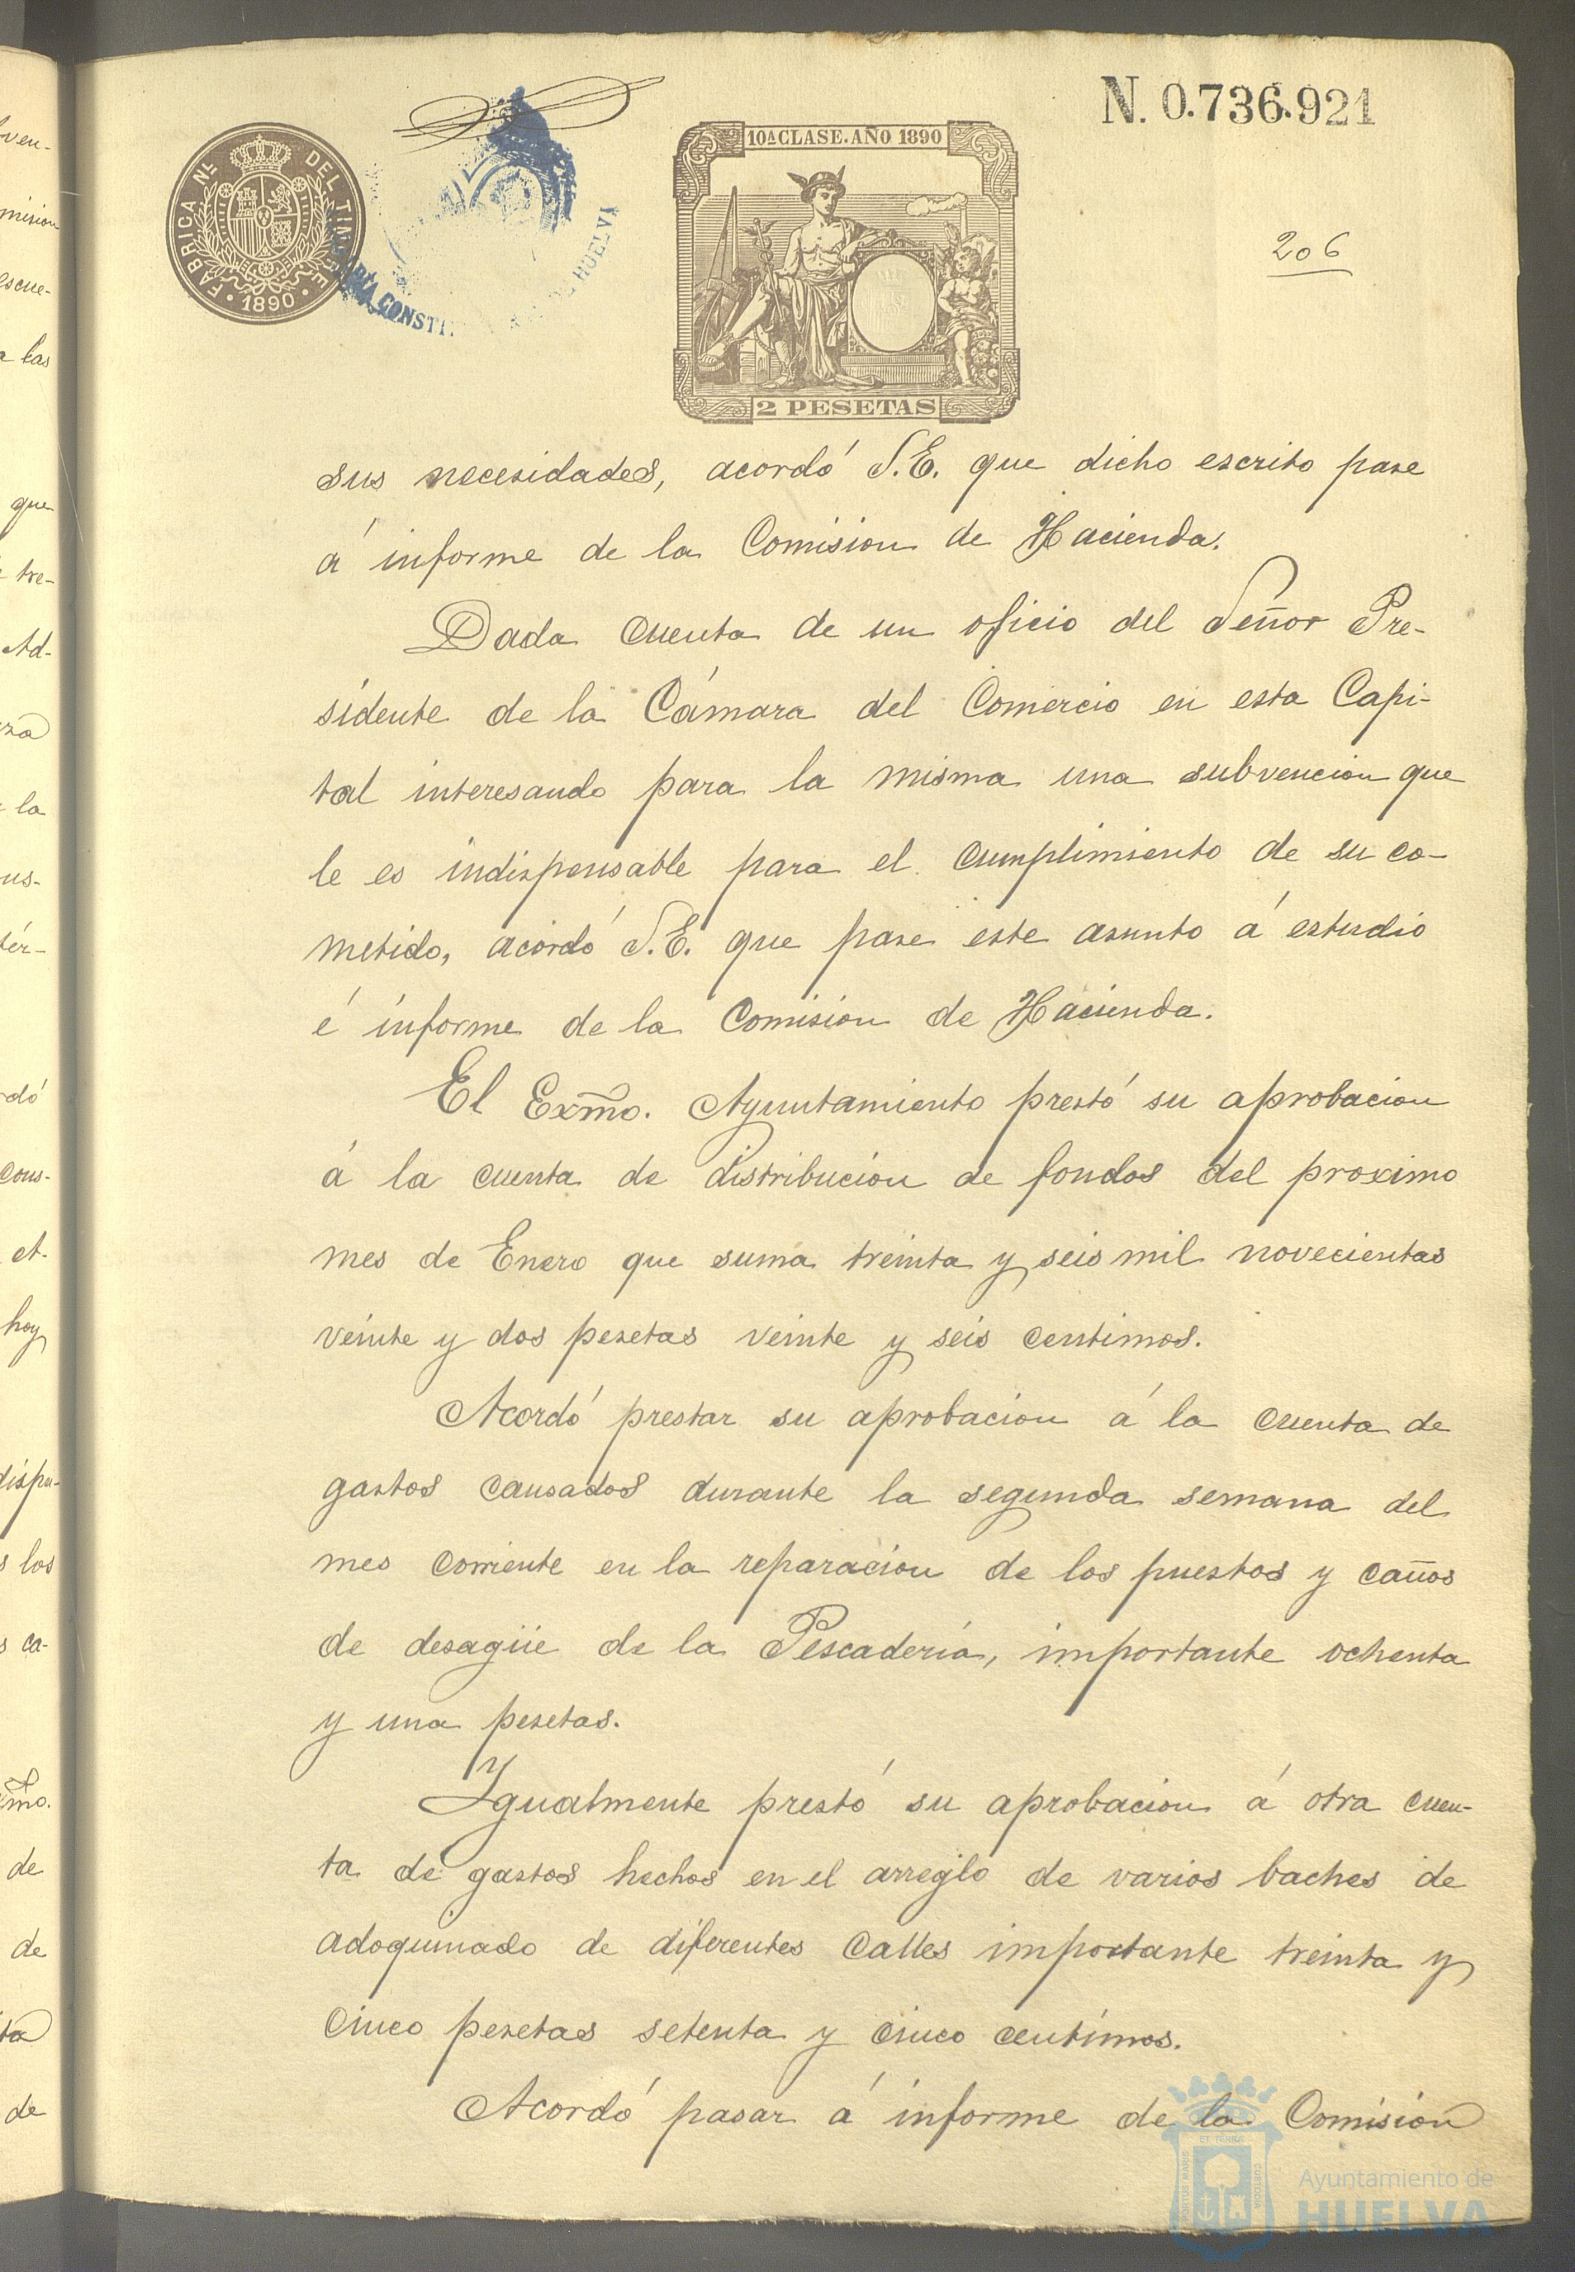 N. 0.736.921
FABRICA NL DEL TIMBRE
1890
CONSTI
HUELVA
10A CLASE. AÑO 1890
2 PESETAS
206
sus necesidades, acordó S.E. que dicho escrito pase
á informe de la Comision de Hacienda.
Dada cuenta de un oficio del Señor Pre-
sidente de la Cámara del Comercio en esta Capi-
tal interesando para la misma una subvencion que
le es indispensable para el cumplimiento de su co-
metido, acordó S.E. que pase este asunto á estudio
é informe de la Comision de Hacienda.
El Exmo. Ayuntamiento prestó su aprobacion
á la cuenta de distribucion de fondos del proximo
mes de Enero que suma treinta y seis mil novecientas
veinte y dos pesetas veinte y seis centimos.
Acordó prestar su aprobacion á la cuenta de
gastos causados durante la segunda semana del
mes corriente en la reparacion de los puestos y caños
de desagüe de la Pescaderia, importante ochenta
y una pesetas.
Igualmente prestó su aprobacion á otra cuen-
ta de gastos hechos en el arreglo de varios baches de
adoquinado de diferentes calles importante treinta y
cinco pesetas setenta y cinco centimos.
Acordó pasar á informe de la Comision
Ayuntamiento de
HUELVA
ven-
mision
escue-
a las
que
tre-
Ad-
la
us-
tér-
rdó
cons-
et-
hoy
dispu-
s los
s ca-
de
de
ta
de